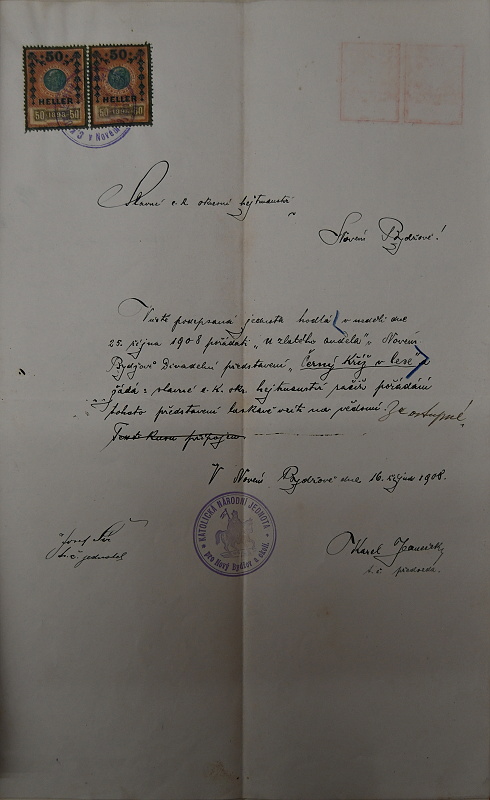 50 50
HELLER HELLER
50 1898 50 50 1898 50
v Novém
Slavné c. k. okresní hejtmanství
Novém Bydžově!
níže podepsaná jednota hodlá v neděli dne
25. října 1908 pořádati „u zlatého anděla" v Novém
Bydžově Divadelní představení „Černý Kříž v lese" a
žádá: slavné c. k. okr. hejtmanství račiž pořádání
tohoto představení laskavě vzíti na vědomí.
Text kusu připojen
V Novém Bydžově dne 16. října 1908.
KATOLICKÁ NÁRODNÍ JEDNOTA
pro Nový Bydžov a okolí.
Josef
t. č. jednatel
Karel
t. č. předseda.